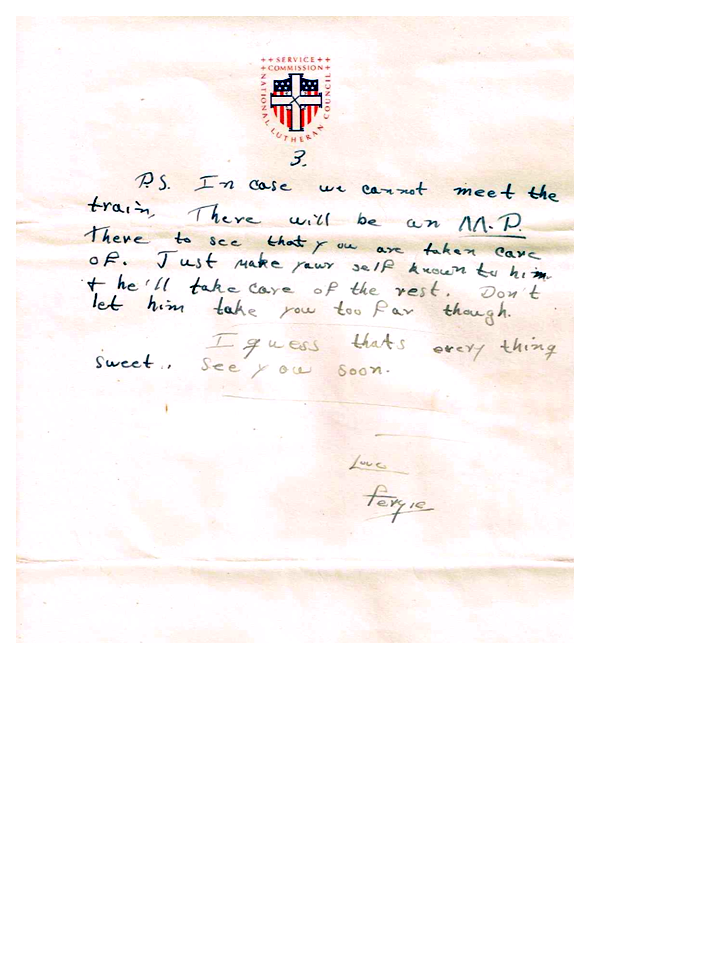 ++ SERVICE ++
+ COMMISSION +
NATIONAL LUTHERAN COUNCIL
3.
P.S. In case we cannot meet the
train, There will be an M.P.
There to see that you are taken care
of. Just make your self known to him
+ he'll take care of the rest. Don't
let him take you too far though.
I guess thats every thing
sweet., See you soon.
Love
Fergie